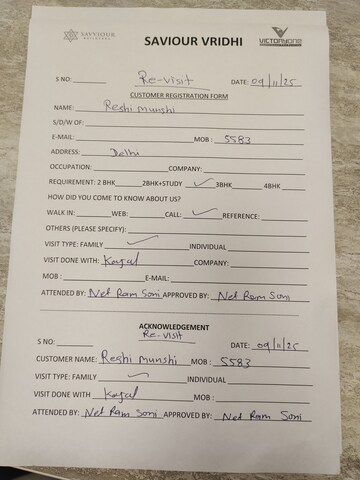 SAVVIOUR
BUILDERS
SAVIOUR VRIDHI
VICTORYONE
S NO: Re-visit DATE: 09/11/25
CUSTOMER REGISTRATION FORM
NAME: Reshi munshi
S/D/W OF:
E-MAIL: MOB: 5583
ADDRESS: Delhi
OCCUPATION: COMPANY:
REQUIREMENT: 2 BHK 2BHK+STUDY ✓ 3BHK 4BHK
HOW DID YOU COME TO KNOW ABOUT US?
WALK IN: WEB: CALL: ✓ REFERENCE:
OTHERS (PLEASE SPECIFY):
VISIT TYPE: FAMILY ✓ INDIVIDUAL
VISIT DONE WITH: Kajal COMPANY:
MOB: E-MAIL:
ATTENDED BY: Net Ram Soni APPROVED BY: Net Ram Soni
ACKNOWLEDGEMENT
Re-visit
S NO: DATE: 09/11/25
CUSTOMER NAME: Reshi munshi MOB: 5583
VISIT TYPE: FAMILY ✓ INDIVIDUAL
VISIT DONE WITH Kajal MOB:
ATTENDED BY: Net Ram Soni APPROVED BY: Net Ram Soni